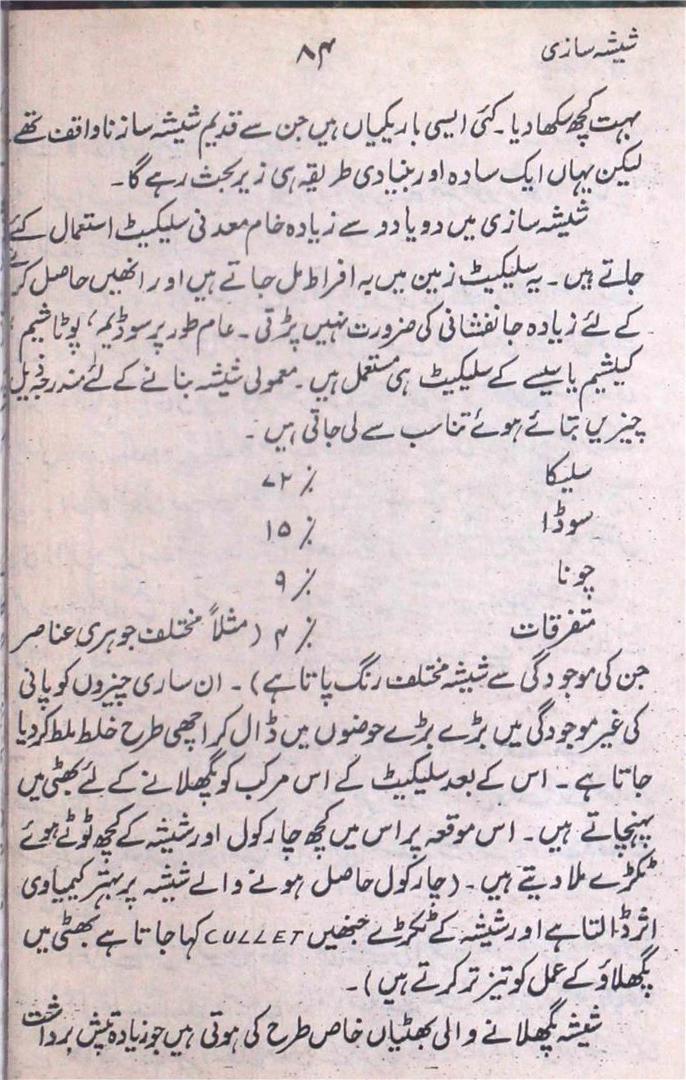 شیشہ سازی ۸۴
بہت کچھ سکھا دیا۔ کئی ایسی باریکیاں ہیں جن سے قدیم شیشہ ساز ناواقف تھے۔
لیکن یہاں ایک سادہ اور بنیادی طریقہ ہی زیر بحث رہے گا۔
شیشہ سازی میں دو یا دو سے زیادہ خام معدنی سلیکیٹ استعمال کئے
جاتے ہیں۔ یہ سلیکیٹ زمین میں بہ افراط مل جاتے ہیں اور انھیں حاصل کرنے
کے لئے زیادہ جانفشانی کی ضرورت نہیں پڑتی۔ عام طور پر سوڈیم، پوٹاشیم،
کیلشیم یا سیسے کے سلیکیٹ ہی مستعمل ہیں۔ معمولی شیشہ بنانے کے لئے مندرجہ ذیل
چیزیں بتائے ہوئے تناسب سے لی جاتی ہیں۔
سلیکا ۷۲ ٪
سوڈا ۱۵ ٪
چونا ۹ ٪
متفرقات ۴ ٪ (مثلاً مختلف جوہری عناصر
جن کی موجودگی سے شیشہ مختلف رنگ پاتا ہے)۔ ان ساری چیزوں کو پانی
کی غیر موجودگی میں بڑے بڑے حوضوں میں ڈال کر اچھی طرح خلط ملط کر دیا
جاتا ہے۔ اس کے بعد سلیکیٹ کے اس مرکب کو پگھلانے کے لئے بھٹی میں
پہنچاتے ہیں۔ اس موقعہ پر اس میں کچھ چارکول اور شیشہ کے کچھ ٹوٹے ہوئے
ٹکڑے ملا دیتے ہیں۔ (چارکول حاصل ہونے والے شیشہ پر بہتر کیمیاوی
اثر ڈالتا ہے اور شیشہ کے ٹکڑے جنھیں CULLET کہا جاتا ہے بھٹی میں
پگھلاؤ کے عمل کو تیز تر کرتے ہیں)۔
شیشہ پگھلانے والی بھٹیاں خاص طرح کی ہوتی ہیں جو زیادہ تپش برداشت